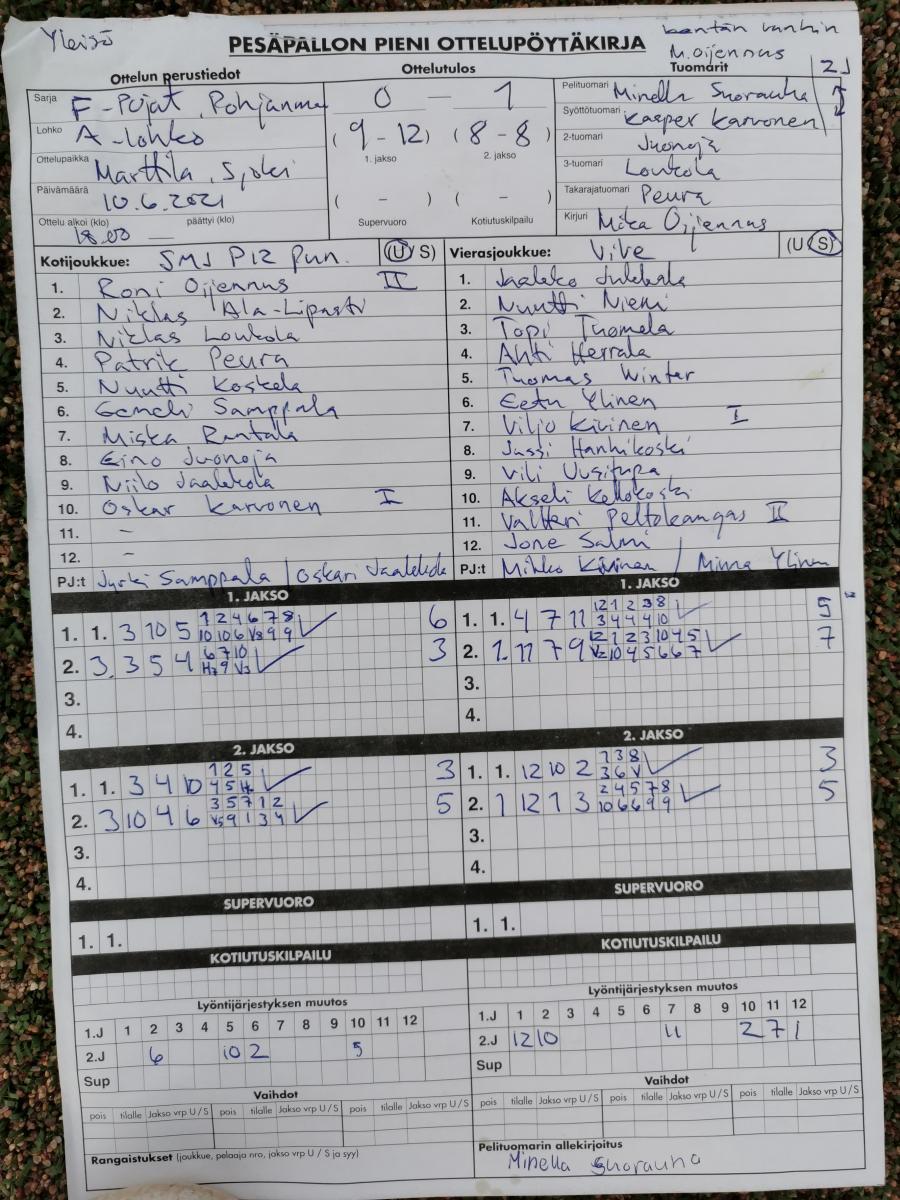 Yleisö
PESÄPALLON PIENI OTTELUPÖYTÄKIRJA
kentän vanhin
M. Oijennus
Ottelun perustiedot
Ottelutulos
Tuomarit
2J
Sarja F-Pojat, Pohjanmaa
0 – 1
Pelituomari Minella Suorauha
Lohko A-lohko
(9 - 12) (8 - 8)
Syöttötuomari Kasper Karvonen
1. jakso 2. jakso
2-tuomari Juonoja
Ottelupaikka Marttila, Sjoki
3-tuomari Loukola
Päivämäärä 10.6.2021
( - ) ( - )
Takarajatuomari Peura
Ottelu alkoi (klo) 18.00 päättyi (klo) —
Supervuoro Kotiutuskilpailu
Kirjuri Mika Oijennus
Kotijoukkue: SMJ P12 Pun. (U/S)
Vierasjoukkue: ViVe (U/S)
1. Roni Oijennus II
2. Niklas Ala-Lipasti
3. Niklas Loukola
4. Patrik Peura
5. Nuutti Koskela
6. Samppala
7. Miska Rantala
8. Eino Juonoja
9. Niilo Jaakkola
10. Oskar Karvonen I
11. –
12. –
PJ:t Jyrki Samppala / Oskari Jaakkola
1. Jaakko Jukkala
2. Nuutti Niemi
3. Topi Tuomela
4. Ahti Herrala
5. Tuomas Winter
6. Eetu Ylinen
7. Viljo Kivinen I
8. Jussi Hanhikoski
9. Vili Uusitupa
10. Akseli Kellokoski
11. Valtteri Peltokangas II
12. Jone Salmi
PJ:t Mikko Kivinen / Minna Ylinen
1. JAKSO
1. 1. 3 10 5 1 2 4 6 7 8 6
10 10 6 V8 9 9
2. 3. 3 5 4 6 7 10 3
H2 9 V3
3.
4.
1. JAKSO
1. 1. 4 7 11 12 1 2 3 8 5
3 4 4 4 10
2. 1. 11 7 9 12 1 2 3 10 4 5 7
V2 10 4 5 6 6 7
3.
4.
2. JAKSO
1. 1. 3 4 10 1 2 5 3
4 5 H
2. 3 10 4 6 3 5 7 1 2 5
V5 9 1 3 4
3.
4.
2. JAKSO
1. 1. 12 10 2 7 3 8 3
3 6 V
2. 1 12 7 3 2 4 5 7 8 5
10 6 6 9 9
3.
4.
SUPERVUORO
1. 1.
SUPERVUORO
1. 1.
KOTIUTUSKILPAILU
KOTIUTUSKILPAILU
Lyöntijärjestyksen muutos
1.J 1 2 3 4 5 6 7 8 9 10 11 12
2.J 6 10 2 5
Sup
Lyöntijärjestyksen muutos
1.J 1 2 3 4 5 6 7 8 9 10 11 12
2.J 12 10 11 2 7 1
Sup
Vaihdot
pois tilalle Jakso vrp U/S pois tilalle Jakso vrp U/S pois tilalle Jakso vrp U/S
Vaihdot
pois tilalle Jakso vrp U/S pois tilalle Jakso vrp U/S pois tilalle Jakso vrp U/S
Rangaistukset (joukkue, pelaaja nro, jakso vrp U / S ja syy)
Pelituomarin allekirjoitus
Minella Suorauha